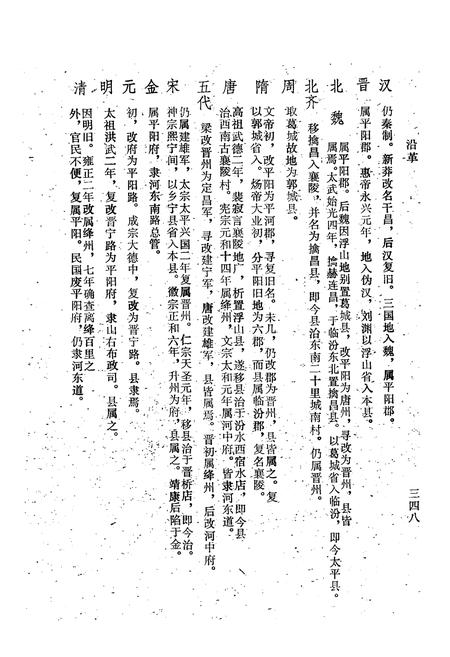 沿革
三四八
汉 仍秦制。新莽改名干昌,后汉复旧。三国地入魏,属平阳郡。
晋 属平阳郡。惠帝永兴元年,地入伪汉,刘渊以浮山省入本县。
北魏 属平阳郡。后魏因浮山地别置葛城县,改平阳为唐州,寻改为晋州,县皆
属焉。太武始光四年,擒赫连昌,于临汾东北置擒昌县。以葛城省入临汾,即今太平县。
北齐 移擒昌入襄陵,并名为擒昌县,即今县治东南二十里城南村。仍属晋州。
周 取葛城故地为郭城县。
隋 文帝初,改平阳为平河郡,寻复旧名。未几,仍改郡为晋州,县皆属之。复
以郭城省入。炀帝大业初,分平阳旧地为六郡,而县属临汾郡,复名襄陵。
唐 高祖武德二年,裴寂言襄陵地广,析置浮山县,遂移县治于汾水西宿水店,即今县
治西南古襄陵村。宪宗元和十四年属绛州,文宗太和元年属河中府。皆隶河东道。
五代 梁改晋州为定昌军,寻改建宁军,唐改建雄军,县皆属焉。晋初属绛州,后改河中府。
宋 仍属建雄军,太宗太平兴国二年复属晋州。仁宗天圣元年,移县治于晋桥店,即今治。
神宗熙宁间,以乡宁县省入本县。徽宗正和六年,升州为府,县属之。靖康后陷于金。
金 属平阳府,隶河东南路总管。
元 初,改府为平阳路。成宗大德中,复改为晋宁路。县隶焉。
明 太祖洪武二年,复改晋宁路为平阳府,隶山右布政司。县属之。
清 因明旧。雍正二年改属绛州,七年确查离绛百里之
外,官民不便,复属平阳。民国废平阳府,仍隶河东道。